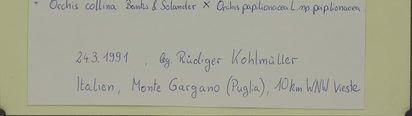 • Orchis collina Banks & Solander × Orchis papilionacea L. ssp. papilionacea
24.3.1991, leg. Rüdiger Kohlmüller
Italien, Monte Gargano (Puglia), 10 km WNW Vieste